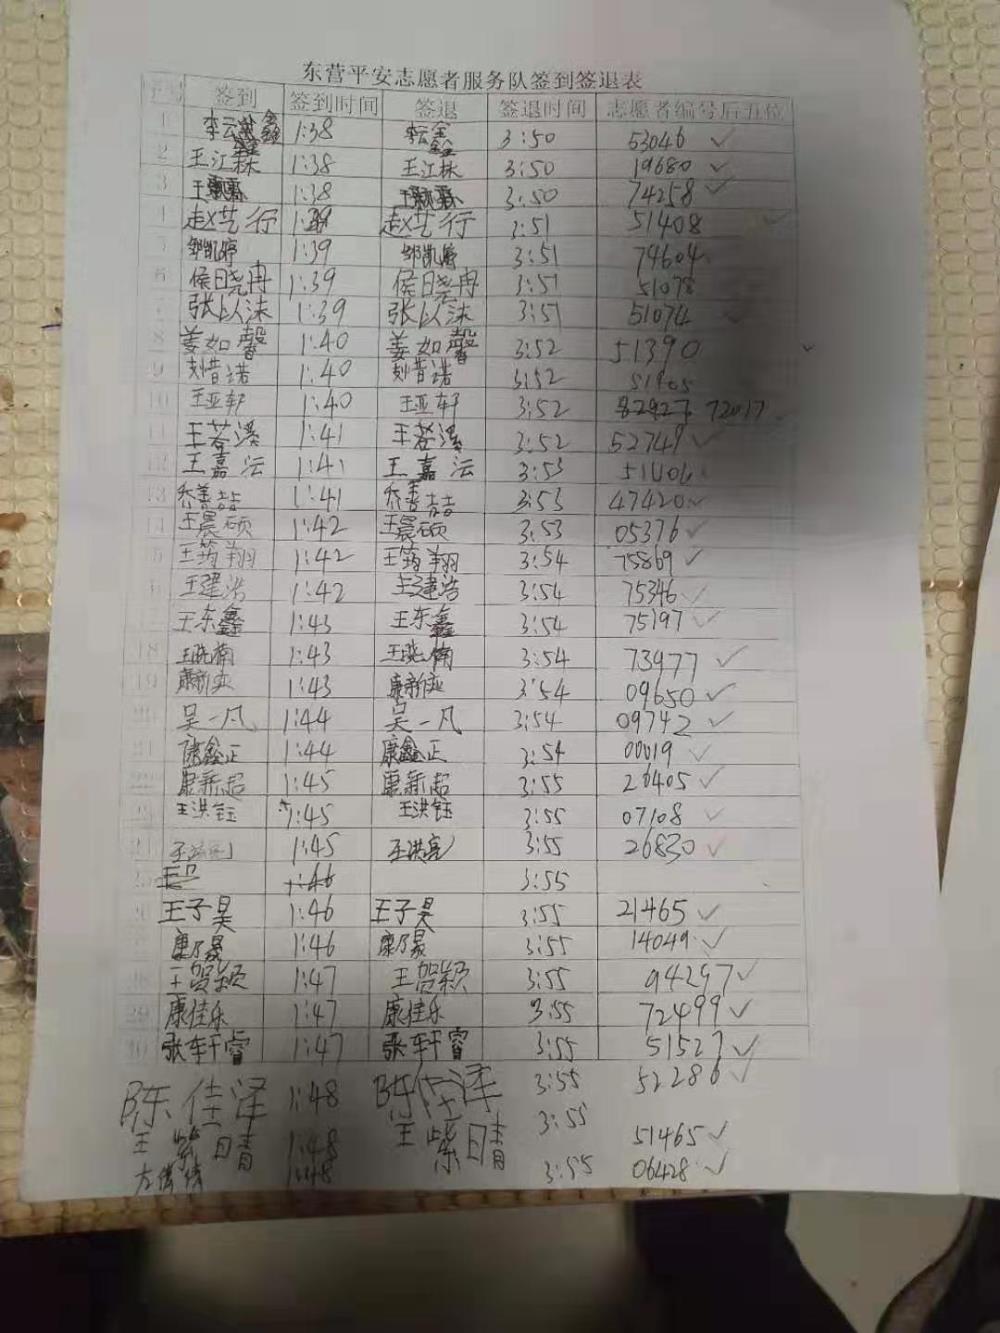 东营平安志愿者服务队签到签退表
序号 签到 签到时间 签退 签退时间 志愿者编号后五位
1 李云鑫 1:38 李云鑫 3:50 53046 ✓
2 王江林 1:38 王江林 3:50 19680 ✓
3 王 1:38 王 3:50 74258 ✓
4 赵艺行 1:39 赵艺行 3:51 51408 ✓
5 邹凯婷 1:39 邹凯婷 3:51 74604
6 侯日晓冉 1:39 侯日晓冉 3:51 51078
7 张以沫 1:39 张以沫 3:51 51074 ✓
8 姜如馨 1:40 姜如馨 3:52 51390 ✓
9 刘昔诺 1:40 刘昔诺 3:52 51905
10 王亚轩 1:40 王亚轩 3:52 72017 ✓
11 王茗溪 1:41 王茗溪 3:52 52749 ✓
12 王嘉沄 1:41 王嘉沄 3:53
13 乔善喆 1:41 乔善喆 3:53 47420 ✓
14 王晨硕 1:42 王晨硕 3:53 05376 ✓
15 王筠翔 1:42 王筠翔 3:54 75869 ✓
16 王建浩 1:42 王建浩 3:54 75346 ✓
王东鑫 1:43 王东鑫 3:54 75197 ✓
18 王晓楠 1:43 王晓楠 3:54 73977 ✓
19 康新奕 1:43 康新奕 3:54 09650 ✓
20 吴一凡 1:44 吴一凡 3:54 09742 ✓
21 康鑫正 1:44 康鑫正 3:54 00019 ✓
22 康新超 1:45 康新超 3:55 26405 ✓
23 王洪钰 1:45 王洪钰 3:55 07108 ✓
24 王洪亮 1:45 王洪亮 3:55 26830 ✓
25 1:46 3:55
26 王子昊 1:46 王子昊 3:55 21465 ✓
27 康乃晟 1:46 康乃晟 3:55 14049 ✓
28 王贺颖 1:47 王贺颖 3:55 94297 ✓
29 康佳乐 1:47 康佳乐 3:55 72499 ✓
30 张轩睿 1:47 张轩睿 3:55 51527 ✓
陈佳泽 1:48 陈佳泽 3:55 52286 ✓
王紫晴 1:48 王紫晴 3:55 51465 ✓
1:48 3:55 06428 ✓